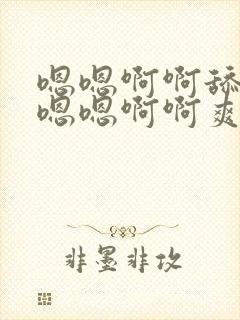 嗯嗯啊啊舔
嗯嗯啊啊爽
非墨非攻